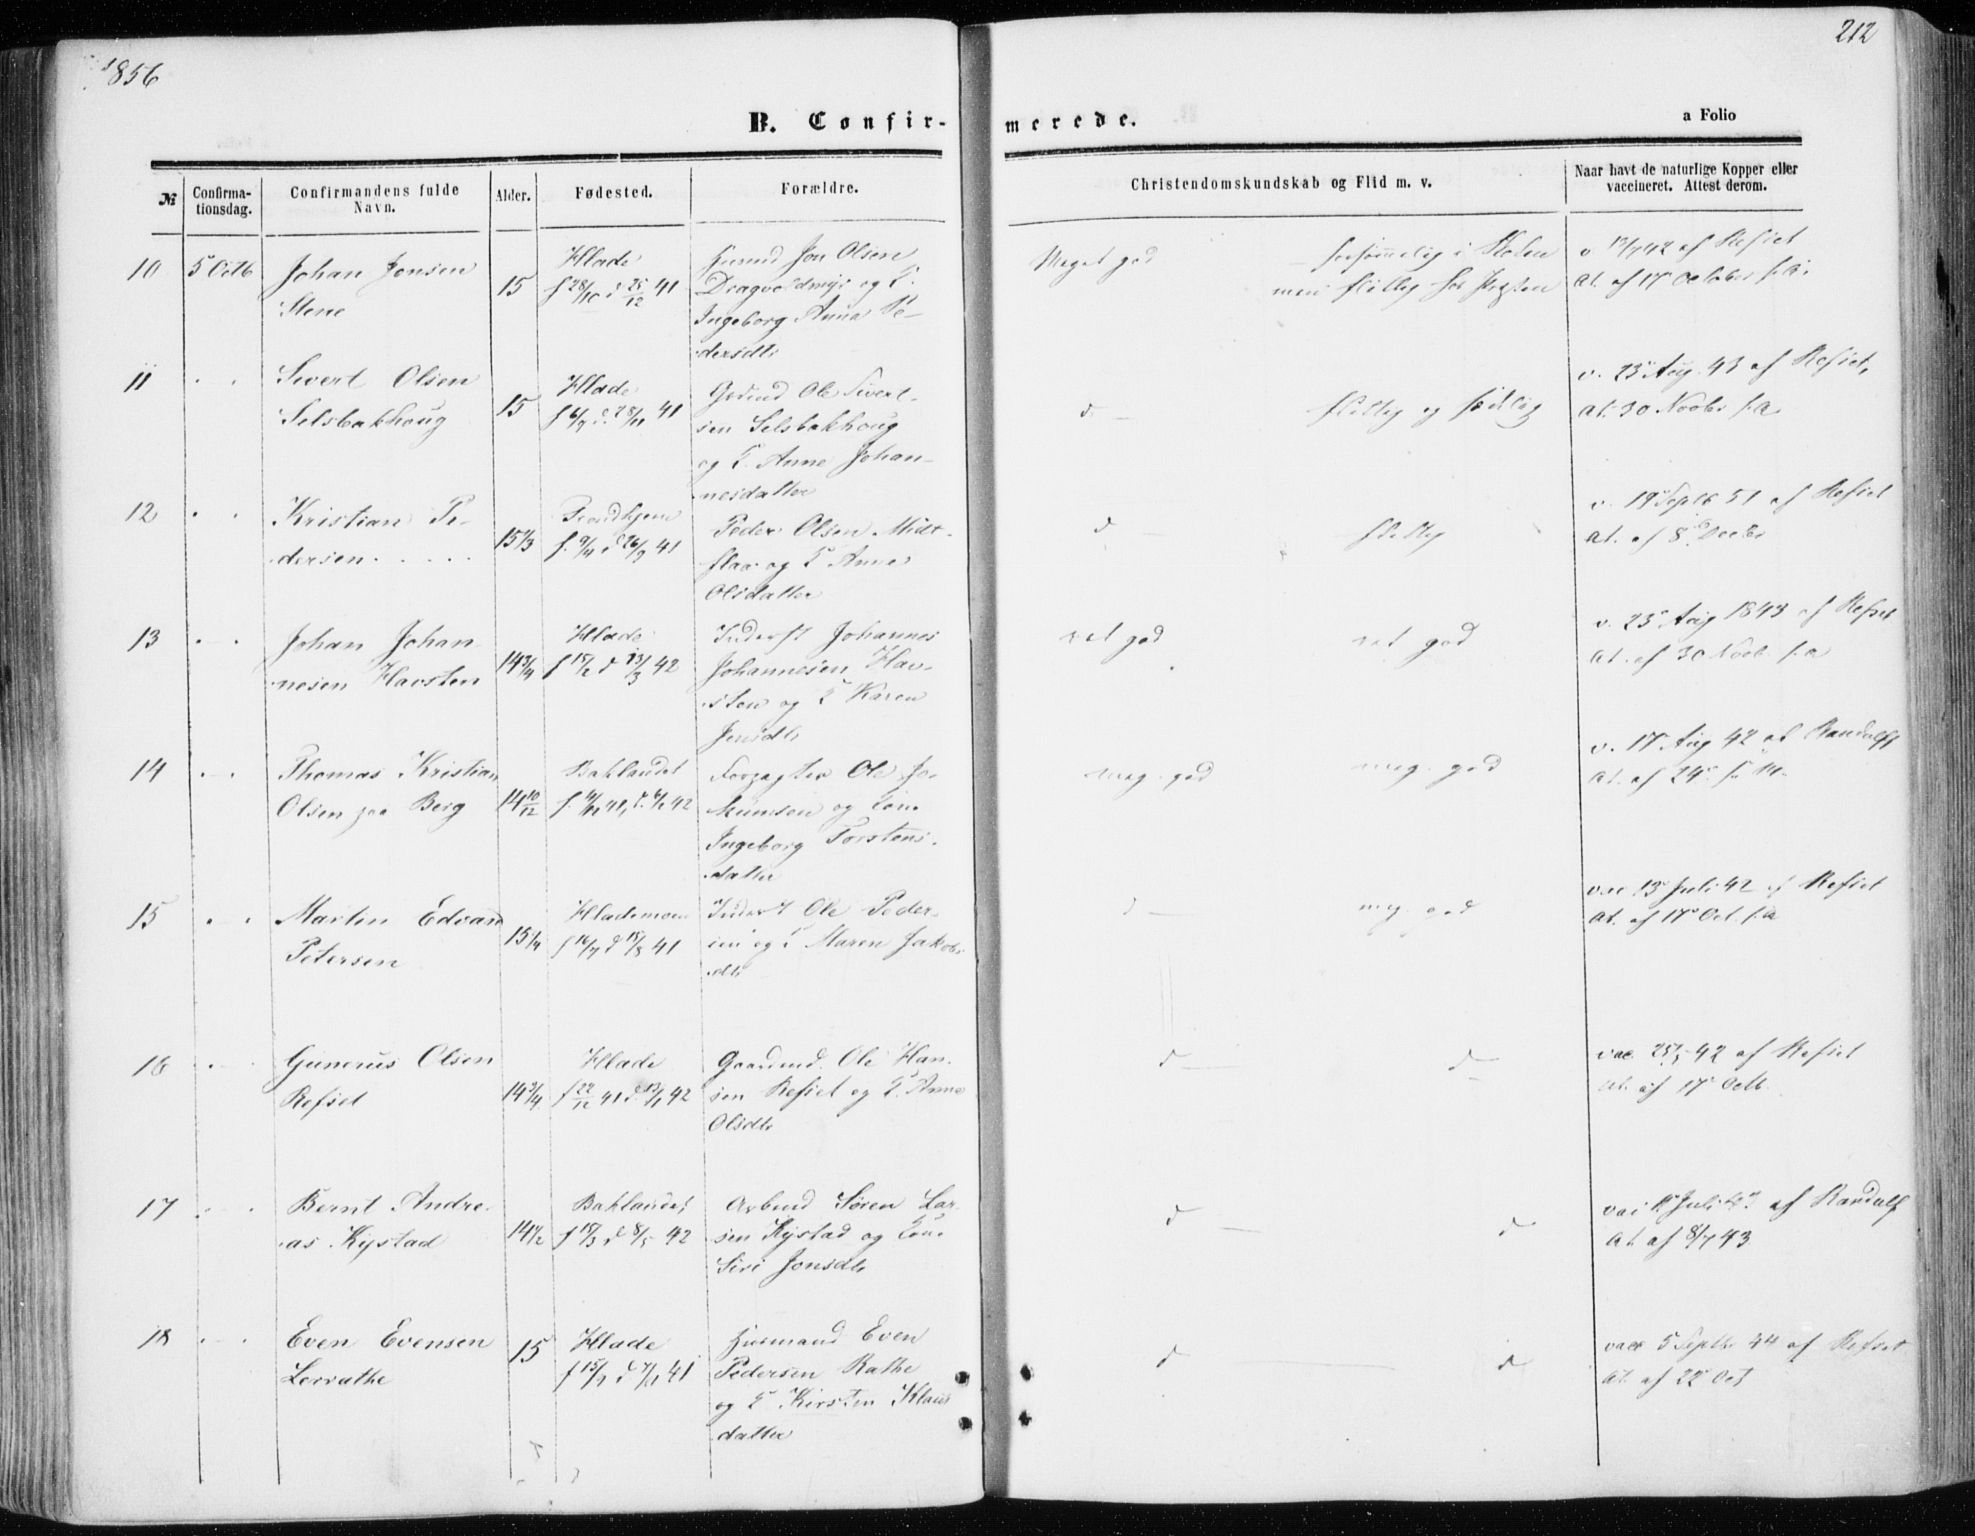 1856
212
B. Confir-
merede.
a Folio
№
Confirma-
tionsdag.
Confirmandens fulde
Navn.
Alder.
Fødested.
Forældre.
Christendomskundskab og Flid m. v.
Naar havt de naturlige Kopper eller
vaccineret. Attest derom.
10 5 Octb Johan Jonsen
Stene
15
Hlade
f 28/10 d 25/12 41
Husmd Jon Olsen
Dragvoldmyr og K.
Ingeborg Anna Pe-
dersdtr
Meget god
forsømmelig i Skolen
men flittig hos Præsten
v 12/7 42 af Refset
At. af 17 October s.a.
11
Sivert Olsen
Selsbakhoug
15
Hlade
Ole Sivert-
sen Selsbakhoug
og K. Anne Johan-
nesdatter
d
flittig og sædelig
v. 23 Aug. 43 af Refset,
At. 30 Novbr s.a.
12
Kristian Pe-
dersen
15 1/3
Trondhjem
Peder Olsen
og K Anne
Olsdatter
d
flittig
v. 19 Septb 51 af Refset
At. af 8 Decbr
13
Johan Johan-
nesen Havsten
14 3/4
Hlade
f 15/2 d 13/3 42
Inderst Johannes
Johannesen Hav-
sten og K Karen
Jensdtr
ret god
ret god
v. 23 Aug 1843 af Refset
At. af 30 Novb. s.a
14
Thomas Kristian
Olsen paa Berg
14 10/12
Baklandet
Forpagter Ole Jo-
og Kone
Ingeborg Torstens-
datter
meg. god
meg. god
v. 17 Aug 42 af Randulff
At. af 24 s. M.
15
Martin Edvard
Petersen
15 1/4
Hlademoen
f 16/7 d 15/8 41
Inderst Ole Peder-
sen og K Maren Jakobs-
dtr
d
meg. god
vac 13 Juli 42 af Refset
At. af 17 Oct. s.a
16
Gunerus Olsen
Refset
14 3/4
Hlade
f 22/12 41 d. 13/1 42
Gaardmd. Ole Han-
sen Refset og K. Anne
Olsdtr
d
d
vac. 25/5 42 af Refset
At. af 17 Octb.
17
Bernt Andre-
as Kystad
14 1/2
Baklandet
f 18/3 d 8/5 42
Arbmd Søren Lar-
sen Kystad og Kone
Siri Jonsdtr
d
d
Juli 42 af Randulf
At af 8/7 43
18
Even Evensen
Lerrathe
15
Hlade
Husmand Even
Pedersen Rathe
og K Kirsten Klaus-
datter
d
d
vacc 5 Septbr 44 af Refset
At. af 22 Oct